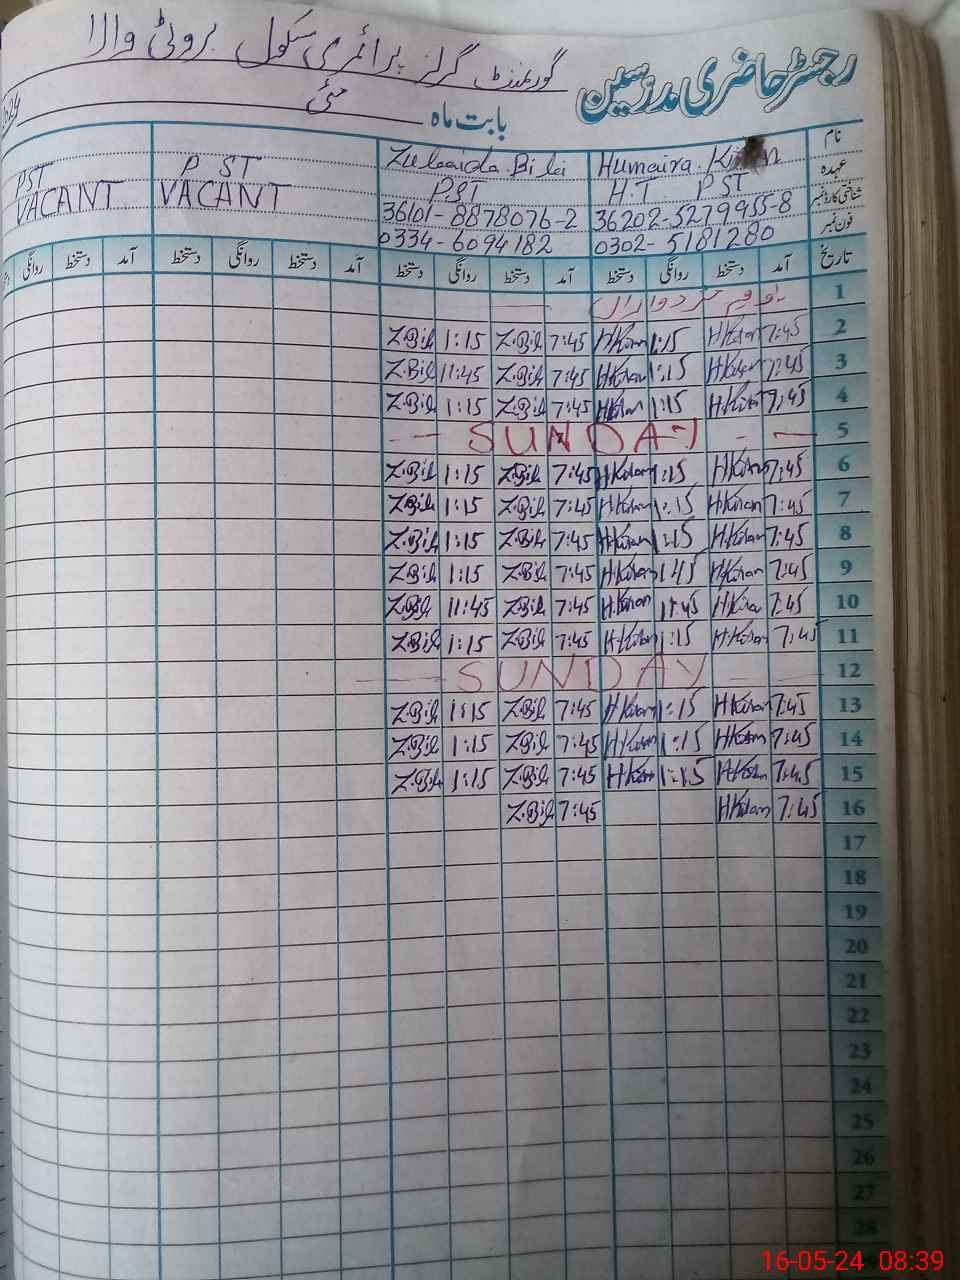 رجسٹر حاضری مدرسین گورنمنٹ گرلز پرائمری سکول بروٹی والا
بابت ماہ مئی
نام Humaira Zubaida Bibi
عہدہ H.T PST PST P ST PST
شناختی کارڈ نمبر 36202-5279955-8 36101-8878076-2 VACANT VACANT
فون نمبر 0302-5181280 0334-6094182
تاریخ آمد دستخط روانگی دستخط آمد دستخط روانگی دستخط آمد دستخط روانگی دستخط آمد دستخط روانگی
1
2 7:45 H.Kiran 1:15 H.Kiran 7:45 Z.Bibi 1:15 Z.Bibi
3 7:45 H.Kiran 1:15 H.Kiran 7:45 Z.Bibi 11:45 Z.Bibi
4 7:45 H.Kiran 1:15 H.Kiran 7:45 Z.Bibi 1:15 Z.Bibi
5 SUNDAY
6 7:45 H.Kiran 1:15 H.Kiran 7:45 Z.Bibi 1:15 Z.Bibi
7 7:45 H.Kiran 1:15 H.Kiran 7:45 Z.Bibi 1:15 Z.Bibi
8 7:45 H.Kiran 1:15 H.Kiran 7:45 Z.Bibi 1:15 Z.Bibi
9 7:45 H.Kiran 1:45 H.Kiran 7:45 Z.Bibi 1:15 Z.Bibi
10 7:45 H.Kiran 11:45 H.Kiran 7:45 Z.Bibi 11:45 Z.Bibi
11 7:45 H.Kiran 1:15 H.Kiran 7:45 Z.Bibi 1:15 Z.Bibi
12 SUNDAY
13 7:45 H.Kiran 1:15 H.Kiran 7:45 Z.Bibi 1:15 Z.Bibi
14 7:45 H.Kiran 1:15 H.Kiran 7:45 Z.Bibi 1:15 Z.Bibi
15 7:45 H.Kiran 1:15 H.Kiran 7:45 Z.Bibi 1:15 Z.Bibi
16 7:45 H.Kiran 7:45 Z.Bibi
17
18
19
20
21
22
23
24
25
26
27
28
16-05-24 08:39